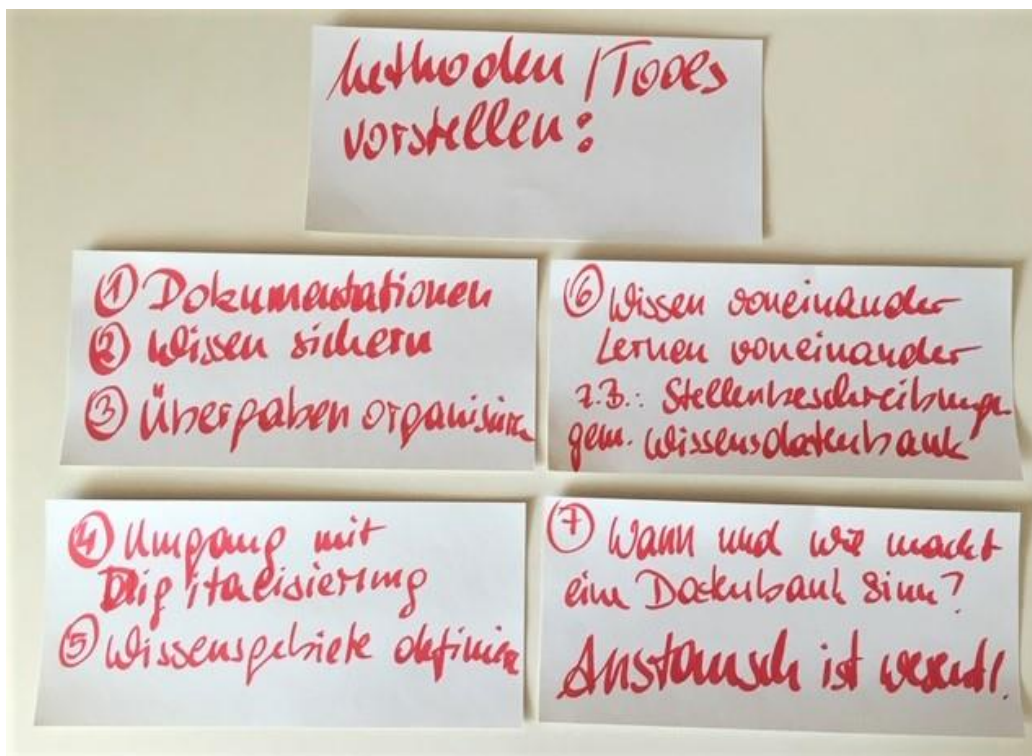 Methoden / Tools
vorstellen:
① Dokumentationen
② Wissen sichern
③ Übergaben organisieren
④ Umgang mit
Digitalisierung
⑤ Wissensgebiete definieren
⑥ Wissen voneinander
Lernen voneinander
z.B.: Stellenbeschreibungen
gem. Wissensdatenbank
⑦ Wann und wie macht
eine Datenbank Sinn?
Austausch ist wesentl.